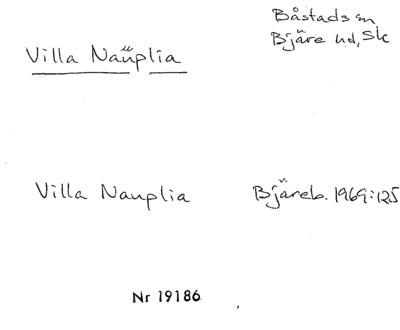 Båstads sn
Bjäre hd, Sk
Villa Nauplia
Villa Nauplia
Bjäreb. 1969:125
Nr 19186